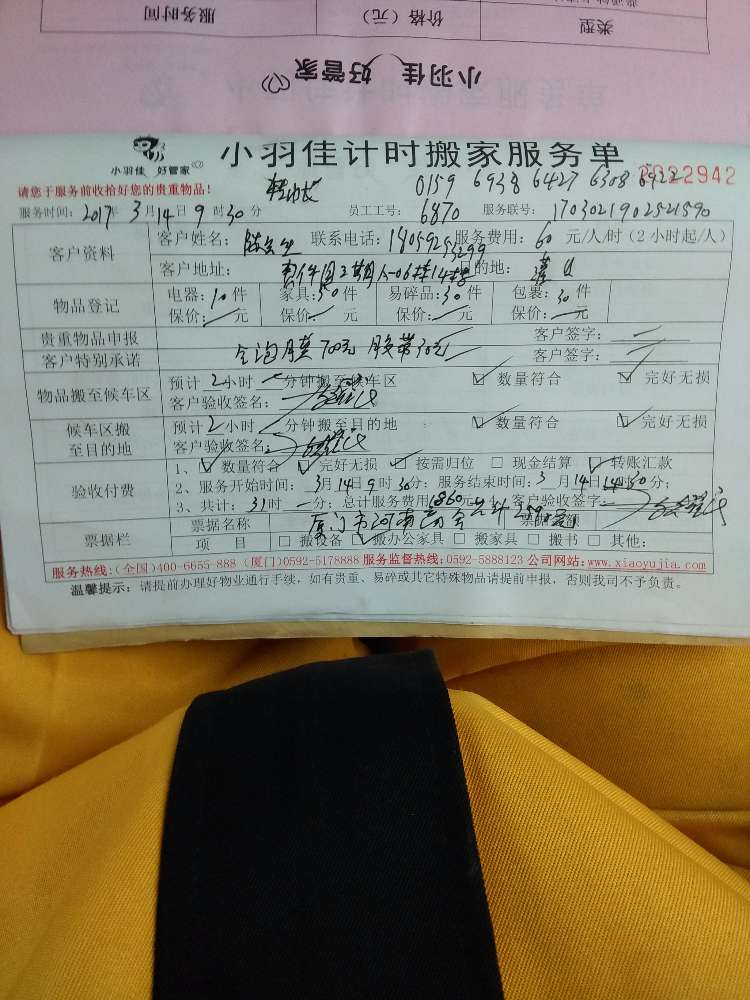 类型 价格（元） 服务时间
小羽佳 好管家
小羽佳 好管家
小羽佳计时搬家服务单
请您于服务前收拾好您的贵重物品！
0159 6938 6427 6308 6922
2022942
服务时间：2017年3月14日9时30分 员工工号：6870 服务联号：1703021902521590
客户资料 客户姓名： 联系电话：18059253299 服务费用：60元/人/时(2小时起/人)
客户地址： 目的地：
物品登记 电器：10件 家具：50件 易碎品：30件 包裹：30件
保价：一元 保价：一元 保价：一元 保价：一元
贵重物品申报 客户签字：
膜70元 胶带30元
客户特别承诺 客户签字：
物品搬至候车区 预计2小时一分钟搬至候车区 ☑数量符合 ☑完好无损
客户验收签名：
候车区搬至目的地 预计2小时 分钟搬至目的地 ☑数量符合 ☑完好无损
客户验收签名：
验收付费 1、☑数量符合 ☑完好无损 □按需归位 □现金结算 ☑转账汇款
2、服务开始时间：3月14日9时30分；服务结束时间：3月14日14时30分；
3、共计：31时一分；总计服务费用1860元；客户验收签字：
票据栏 票据名称 厦门市河南商会 票据金额
项目 □搬设备 ☑搬办公家具 □搬家具 □搬书 □其他：
服务热线：(全国)400-6655-888 (厦门)0592-5178888 服务监督热线：0592-5888123 公司网站：www.xiaoyujia.com
温馨提示：请提前办理好物业通行手续，如有贵重、易碎或其它特殊物品请提前申报，否则我司不予负责。